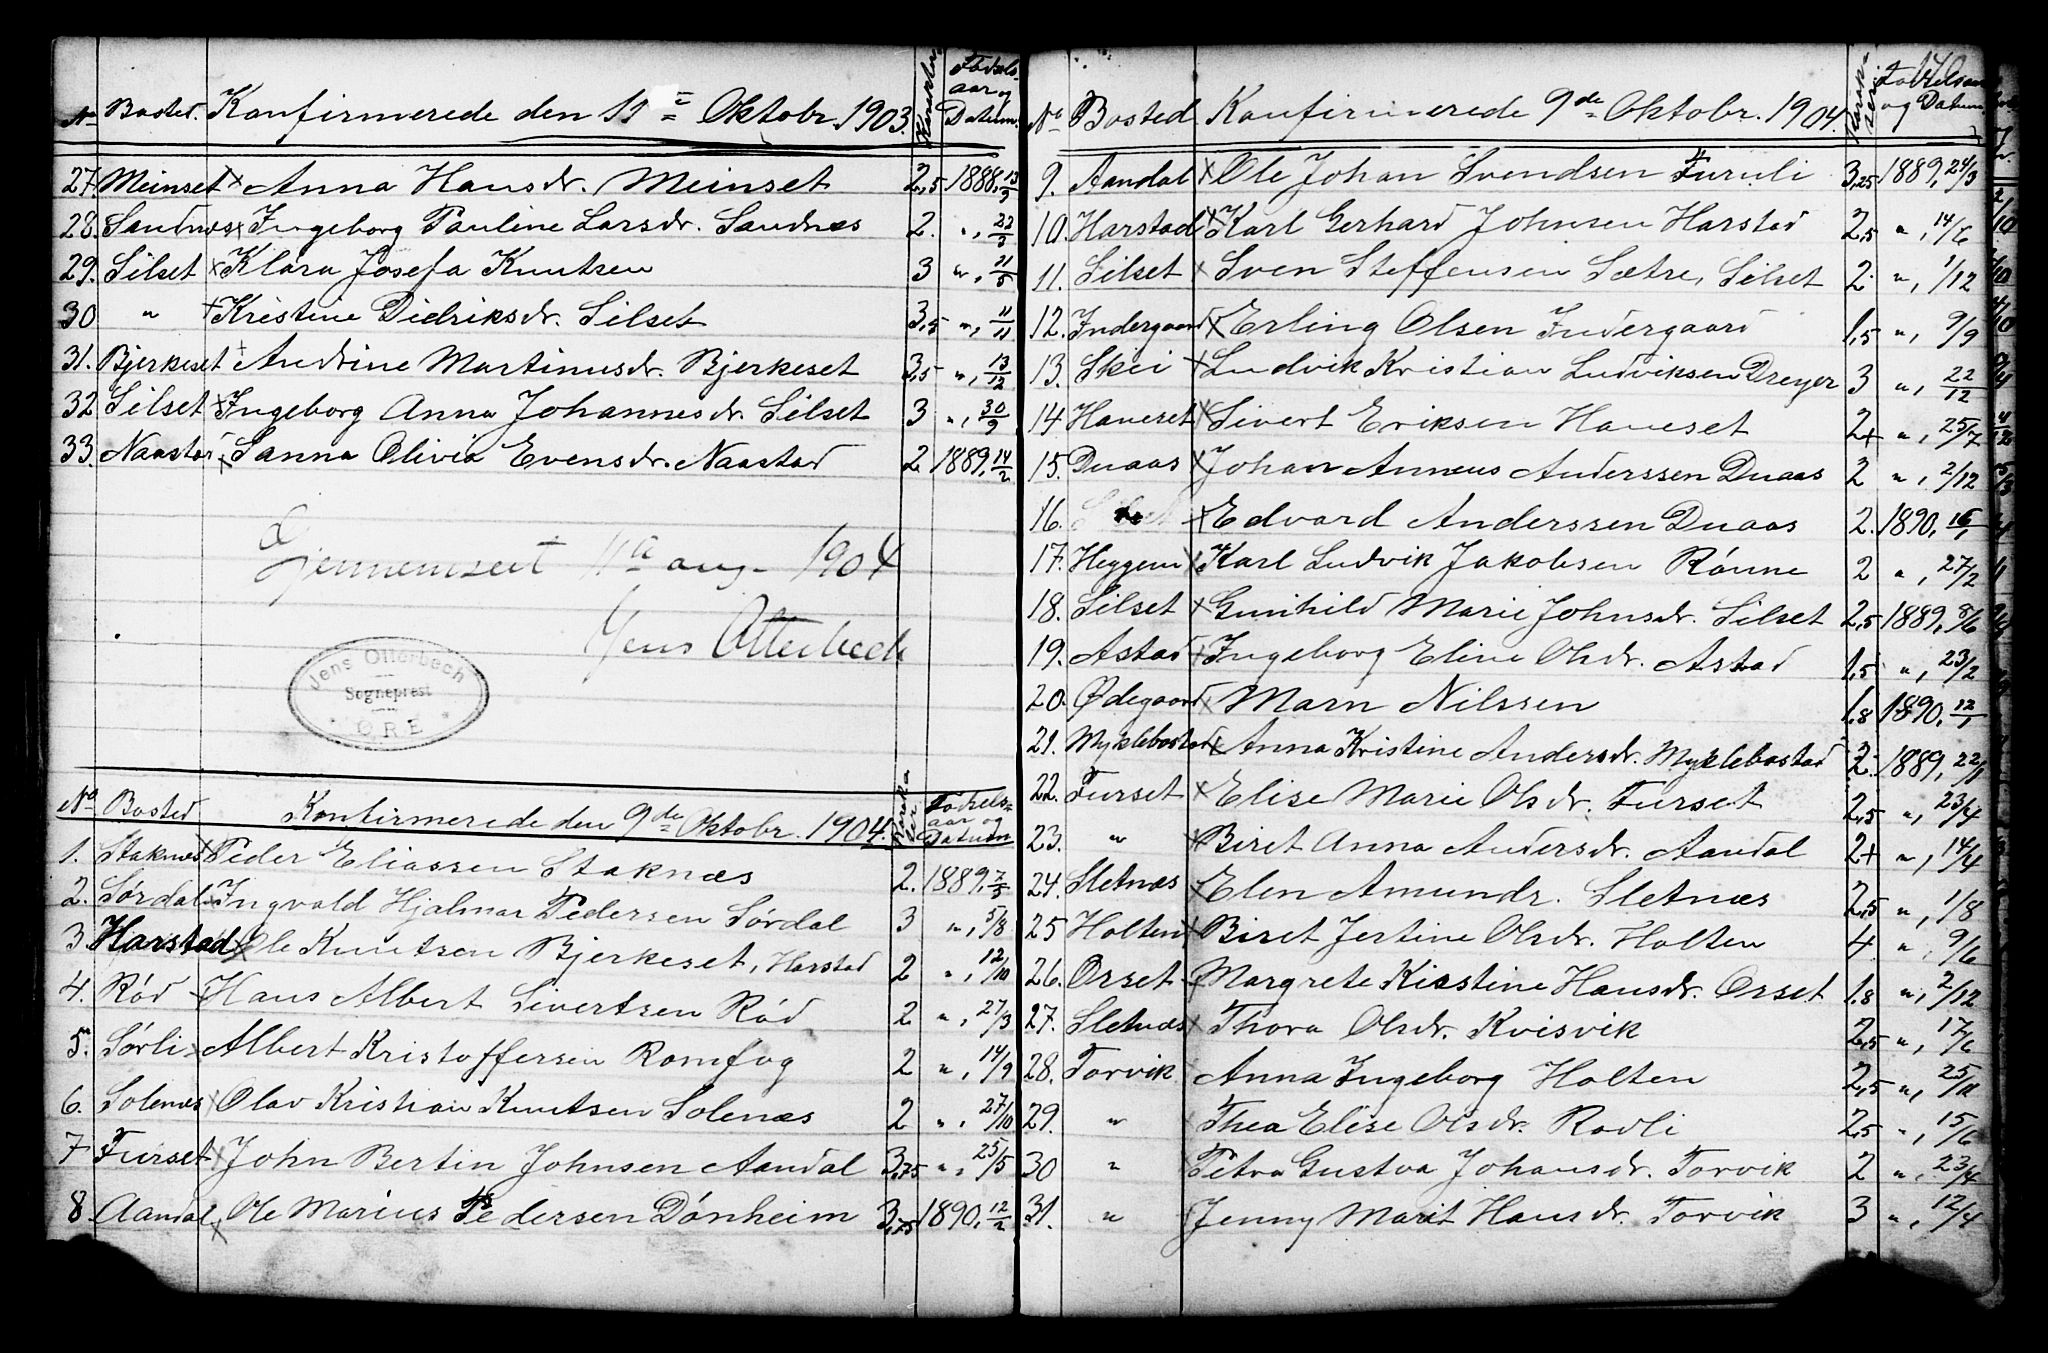 No Bosted. Konfirmerede den 11= Oktobr. 1903. Karakter Fødselsaar og Datum.
27. Meinset × Anna Hansdr. Meinset 2,5 1888, 13/3
28. Sandnes × Ingeborg Pauline Larsdr. Sandnæs 2. ", 22/3
29. Silset × Klara Josefa Knutsen 3 ", 11/5
30 " + Kristine Didriksdr. Silset 3,5 ", 11/11
31. Bjerkeset + Andrine Martinusdr. Bjerkeset 3,5 ", 13/12
32 Silset × Ingeborg Anna Johannesdr. Silset 3 ", 30/9
33. Naastad × Sanna Olivia Evensdr. Naastad 2 1889, 14/2
Gjennemseet 11te aug. 1904
Jens Otterbech
Jens Otterbech
Sogneprest
ØRE
No Bosted Konfirmerede den 9de Oktobr. 1904. Karakter Fødselsaar og Datum
1. Staknæs × Peder Eliassen Staknæs 2. 1889, 7/5
2. Sørdal × Ingvald Hjalmar Pedersen Sørdal 3 ", 5/8
3. Harstad × Ole Knutsen Bjerkeset, Harstad 2 ", 12/10
4. Rød × Hans Albert Sivertsen Rød 2 ", 27/3
5. Sørli × Albert Kristoffersen Romfog 2 ", 14/9
6. Solenæs × Olav Kristian Knutsen Solenæs 2 ", 27/10
7 Furset × John Bertin Johnsen Aandal 3,25 ", 25/5
8. Aandal × Ole Marius Pedersen Dønheim 3,25 1890, 12/2
No Bosted Konfirmerede 9de Oktobr. 1904. Karakter og Datum
9. Aandal × Ole Johan Svendsen Furuli 3,25 1889, 24/3
10. Harstad × Karl Gerhard Johnsen Harstad 2,5 ", 14/6
11. Silset × Sven Steffensen Sætre, Silset 2. ", 1/12
12. Indergaard × Erling Olsen Indergaard 1,5 ", 9/9
13. Skei × Ludvik Kristian Ludviksen Dreyer 3 ", 22/12
14 Haneset × Sivert Eriksen Haneset 2+ ", 25/7
15. Duaas × Johan Anneus Anderssen Duaas 2 ", 2/12
16. × Edvard Anderssen Duaas 2. 1890, 16/1
17. Heggem × Karl Ludvik Jakobsen Rønne 2 ", 27/2
18. Silset × Gunhild Marie Johnsdr. Silset 2,5 1889, 8/6
19. Astad × Ingeborg Eline Olsdr. Astad 1,5 ", 23/2
20. Ødegaard × Marn Nilssen 1,8 1890, 12/1
21. Myklebostad × Anna Kristine Andersdr. Myklebostad 2. 1889, 22/1
22. Furset × Elise Marie Olsdr. Furset 2,5 ", 23/4
23. " × Biret Anna Andersdr. Aandal 2+ ", 14/4
24. Sletnæs × Elen Amundr. Sletnæs 2,5 ", 1/8
25 Holten × Biret Jertine Olsdr. Holten 4. ", 9/6
26. Orset × Margrete Kirstine Hansdr. Orset 1,8 ", 2/12
27. Sletnæs × Thora Olsdr. Kvisvik 2,5 ", 17/6
28. Torvik Anna Ingeborg Holten 2,5 ", 25/11
29. " Thea Elise Olsdr. Rødli 2,5 ", 15/6
30 " Petra Gustva Johansdr. Torvik 2 ", 23/4
31. " Jenny Marit Hansdr. Torvik 3 ", 12/4